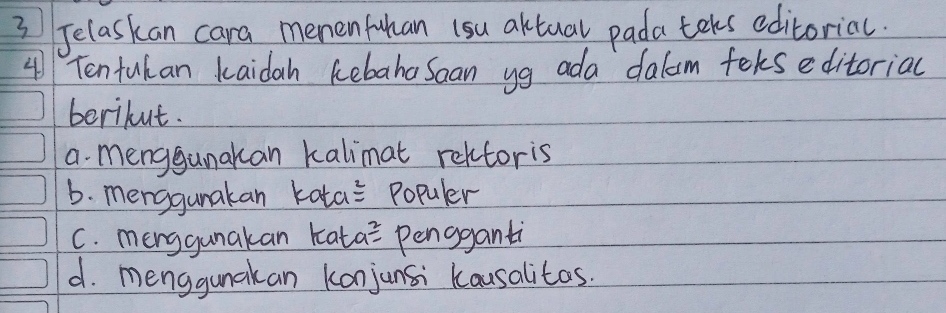 3 Jelaskan cara menentukan isu aktual pada teks editorial.
4 Tentukan kaidah kebahasaan yg ada dalam teks editorial
berikut.
a. menggunakan kalimat rektoris
b. menggunakan kata² populer
c. menggunakan kata² pengganti
d. menggunakan konjunsi kausalitas.